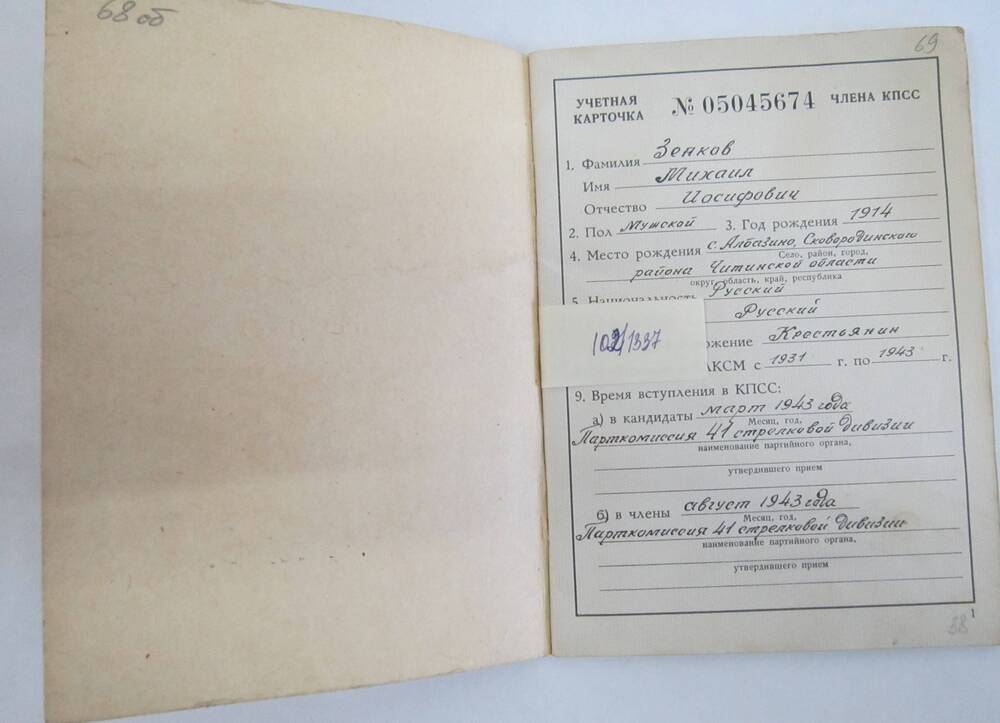 68 об
69
УЧЕТНАЯ КАРТОЧКА № 05045674 ЧЛЕНА КПСС
1. Фамилия Зенков
Имя Михаил
Отчество Иосифович
2. Пол Мужской 3. Год рождения 1914
4. Место рождения с. Албазино, Сковородинского
Село, район, город,
района Читинской области
округ, область, край, республика
5. Национальность Русский
Русский
102/1337
ожение Крестьянин
ЛКСМ с 1931 г. по 1943 г.
9. Время вступления в КПСС:
а) в кандидаты март 1943 года
Месяц, год,
Парткомиссия 41 стрелковой дивизии
наименование партийного органа,
утвердившего прием
б) в члены август 1943 года
Месяц, год,
Парткомиссия 41 стрелковой дивизии
наименование партийного органа,
утвердившего прием
1
38